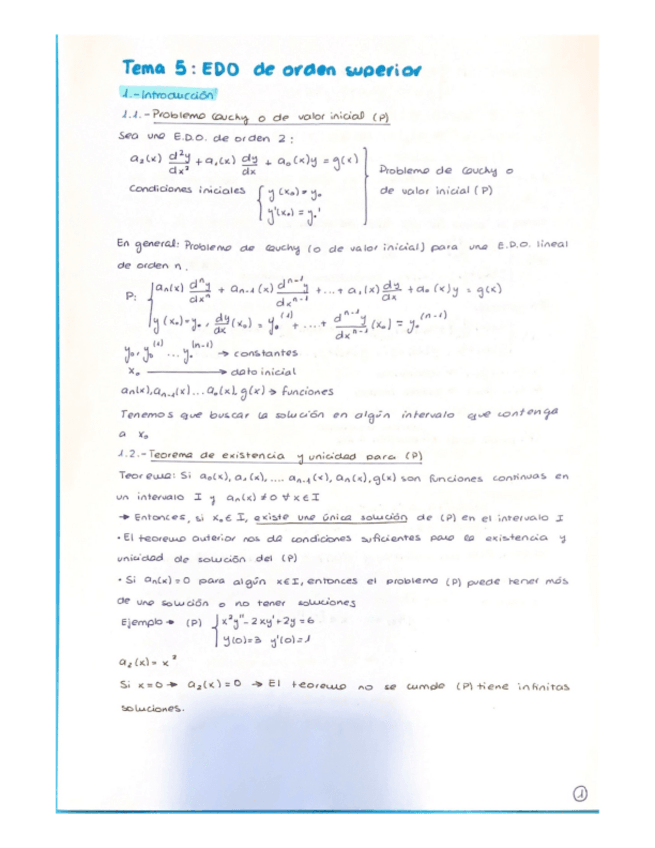 Tema 5: EDO de orden superior
1.-Introducción
1.1.-Problema Cauchy o de valor inicial (P)
Sea una E.D.O. de orden 2:
a₂(x) d²y/dx² + a₁(x) dy/dx + a₀(x)y = g(x)
Problema de Cauchy o
Condiciones iniciales { y(x₀)=y₀
de valor inicial (P)
y'(x₀)=y₀'
En general: Problema de Cauchy (o de valor inicial) para una E.D.O. lineal
de orden n.
P: { aₙ(x) dⁿy/dxⁿ + aₙ₋₁(x) dⁿ⁻¹y/dxⁿ⁻¹ + ... + a₁(x) dy/dx + a₀(x)y = g(x)
y(x₀)=y₀, dy/dx (x₀) = y₀⁽¹⁾ + .... + dⁿ⁻¹y/dxⁿ⁻¹ (x₀) = y₀⁽ⁿ⁻¹⁾
y₀, y₀⁽¹⁾ ... y₀⁽ⁿ⁻¹⁾ → constantes
x₀ → dato inicial
aₙ(x), aₙ₋₁(x) ... a₀(x), g(x) → funciones
Tenemos que buscar la solución en algún intervalo que contenga
a x₀
1.2.-Teorema de existencia y unicidad para (P)
Teorema: Si a₀(x), a₁(x), .... aₙ₋₁(x), aₙ(x), g(x) son funciones continuas en
un intervalo I y aₙ(x) ≠ 0 ∀ x ∈ I
→ Entonces, si x₀ ∈ I, existe una única solución de (P) en el intervalo I
• El teorema anterior nos da condiciones suficientes para la existencia y
unicidad de solución del (P)
• Si aₙ(x)=0 para algún x∈I, entonces el problema (P) puede tener más
de una solución o no tener soluciones
Ejemplo → (P) { x²y''-2xy'+2y=6
y(0)=3 y'(0)=1
a₂(x)= x²
Si x=0 → a₂(x)=0 → El teorema no se cumple (P) tiene infinitas
soluciones.
1